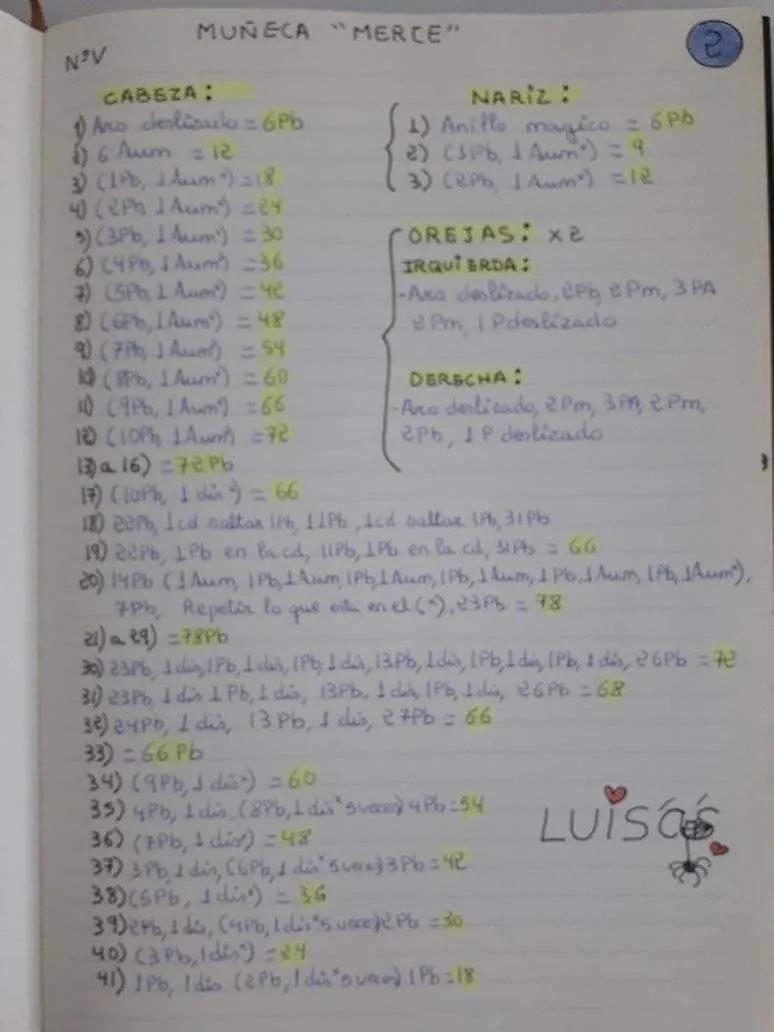 MUÑECA "MERCE"
2
NºV
CABEZA:
1) Aro deslizado = 6Pb
2) 6 Aum = 12
3) (1Pb, 1 Aum*) = 18
4) (2Pb, 1 Aum*) = 24
5) (3Pb, 1 Aum*) = 30
6) (4Pb, 1 Aum*) = 36
7) (5Pb, 1 Aum*) = 42
8) (6Pb, 1 Aum*) = 48
9) (7Pb, 1 Aum*) = 54
10) (8Pb, 1 Aum*) = 60
11) (9Pb, 1 Aum*) = 66
12) (10Pb, 1 Aum*) = 72
13) a 16) = 72Pb
17) (10Pb, 1 dis*) = 66
18) 22Pb, 1cd saltar 1Pb, 11Pb, 1cd saltar 1Pb, 31Pb
19) 22Pb, 1Pb en la cd, 11Pb, 1Pb en la cd, 31Pb = 66
20) 14Pb (1 Aum, 1Pb, 1 Aum, 1Pb, 1 Aum, 1Pb, 1 Aum, 1Pb, 1 Aum, 1Pb, 1 Aum*),
7Pb, Repetir lo que esta en el (*), 23Pb = 78
21) a 29) = 78Pb
30) 23Pb, 1 dis, 1Pb, 1 dis, 1Pb, 1 dis, 13Pb, 1 dis, 1Pb, 1 dis, 1Pb, 1 dis, 26Pb = 72
31) 23Pb, 1 dis 1Pb, 1 dis, 13Pb, 1 dis, 1Pb, 1 dis, 26Pb = 68
32) 24Pb, 1 dis, 13Pb, 1 dis, 27Pb = 66
33) = 66 Pb
34) (9Pb, 1 dis*) = 60
35) 4Pb, 1 dis, (8Pb, 1 dis* 5 veces) 4Pb = 54
36) (7Pb, 1 dis*) = 48
37) 3Pb, 1 dis, (6Pb, 1 dis* 5 veces) 3Pb = 42
38) (5Pb, 1 dis*) = 36
39) 2Pb, 1 dis, (4Pb, 1 dis* 5 veces) 2Pb = 30
40) (3Pb, 1 dis*) = 24
41) 1Pb, 1 dis (2Pb, 1 dis* 5 veces) 1Pb = 18
NARIZ:
1) Anillo magico = 6Pb
2) (1Pb, 1 Aum*) = 9
3) (2Pb, 1 Aum*) = 12
OREJAS: x2
IRQUIERDA:
- Aro deslizado, 2Pb, 2Pm, 3PA
2Pm, 1 P deslizado
DERECHA:
- Aro deslizado, 2Pm, 3PA, 2Pm,
2Pb, 1 P deslizado
LUISÓS